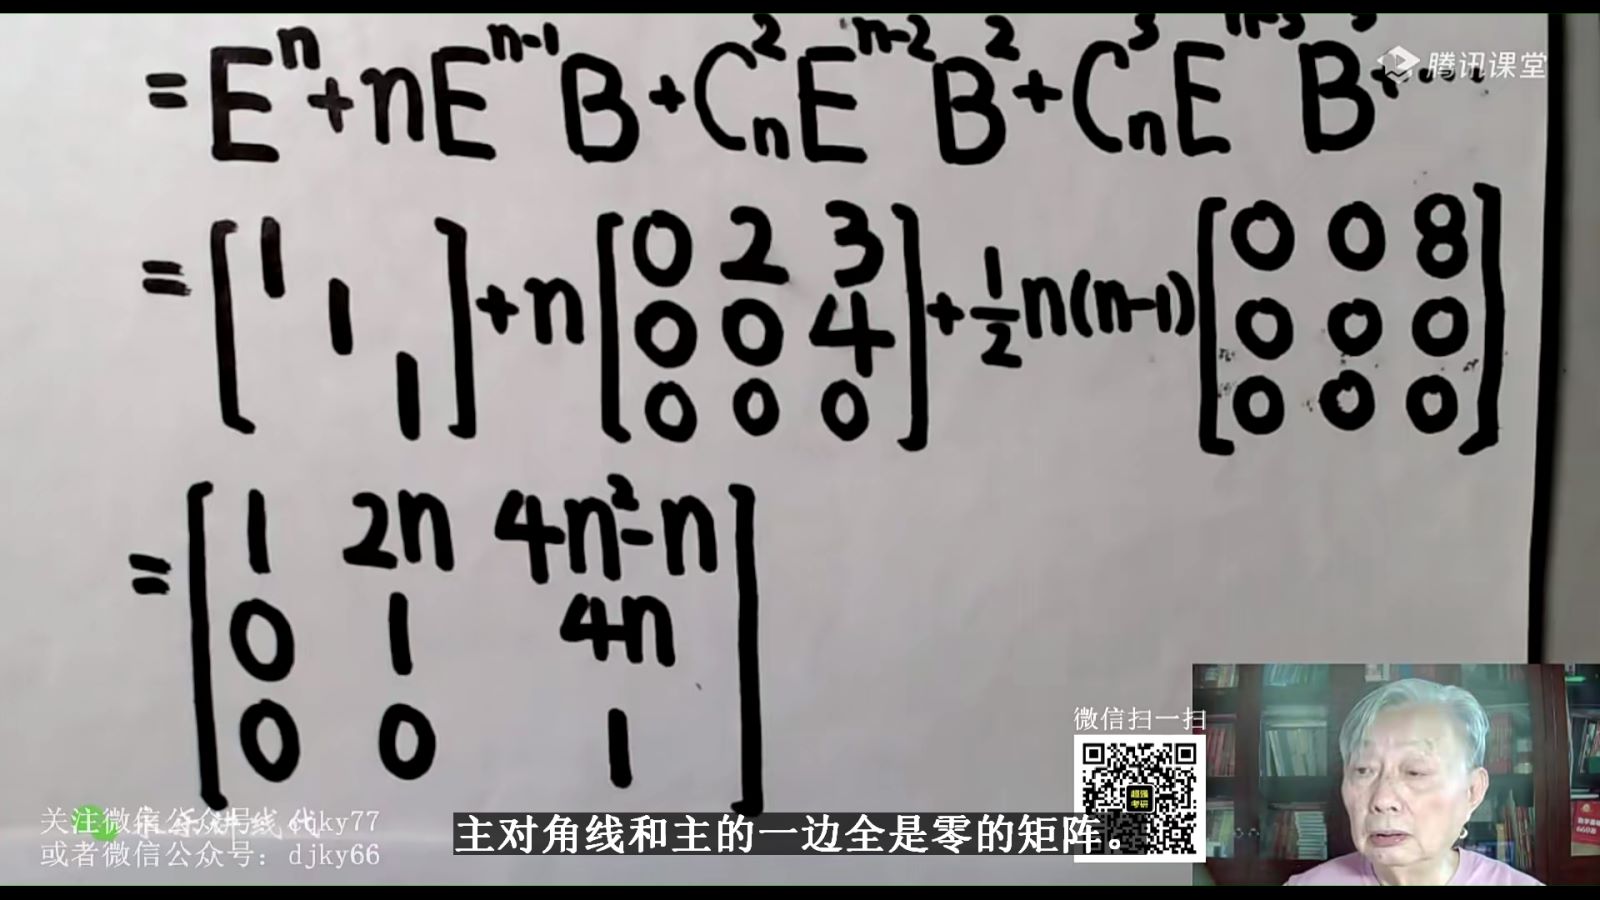 = Eⁿ + nEⁿ⁻¹B + C²ₙEⁿ⁻²B² + C³ₙEⁿ⁻³B³ + ⋯
腾讯课堂
= [1 1 1] + n [0 2 3 + ½n(n-1) [0 0 8
0 0 4 0 0 0
0 0 0] 0 0 0]
= [1 2n 4n²-n
0 1 4n
0 0 1]
微信扫一扫
超强
考研
关注微信公众号：djky77
或者微信公众号：djky66
主对角线和主的一边全是零的矩阵。